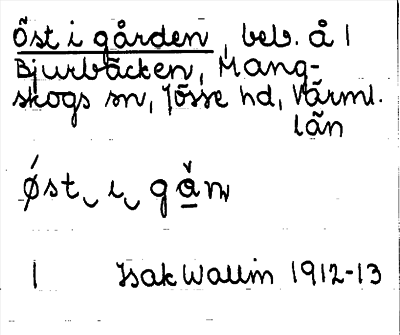 Öst i gården, beb. å 1
Bjurbäcken, Mang-
skogs sn, Jösse hd, Värml.
län
Ǿst‿ i‿ gå̱n
1 Isak Wallin 1912-13